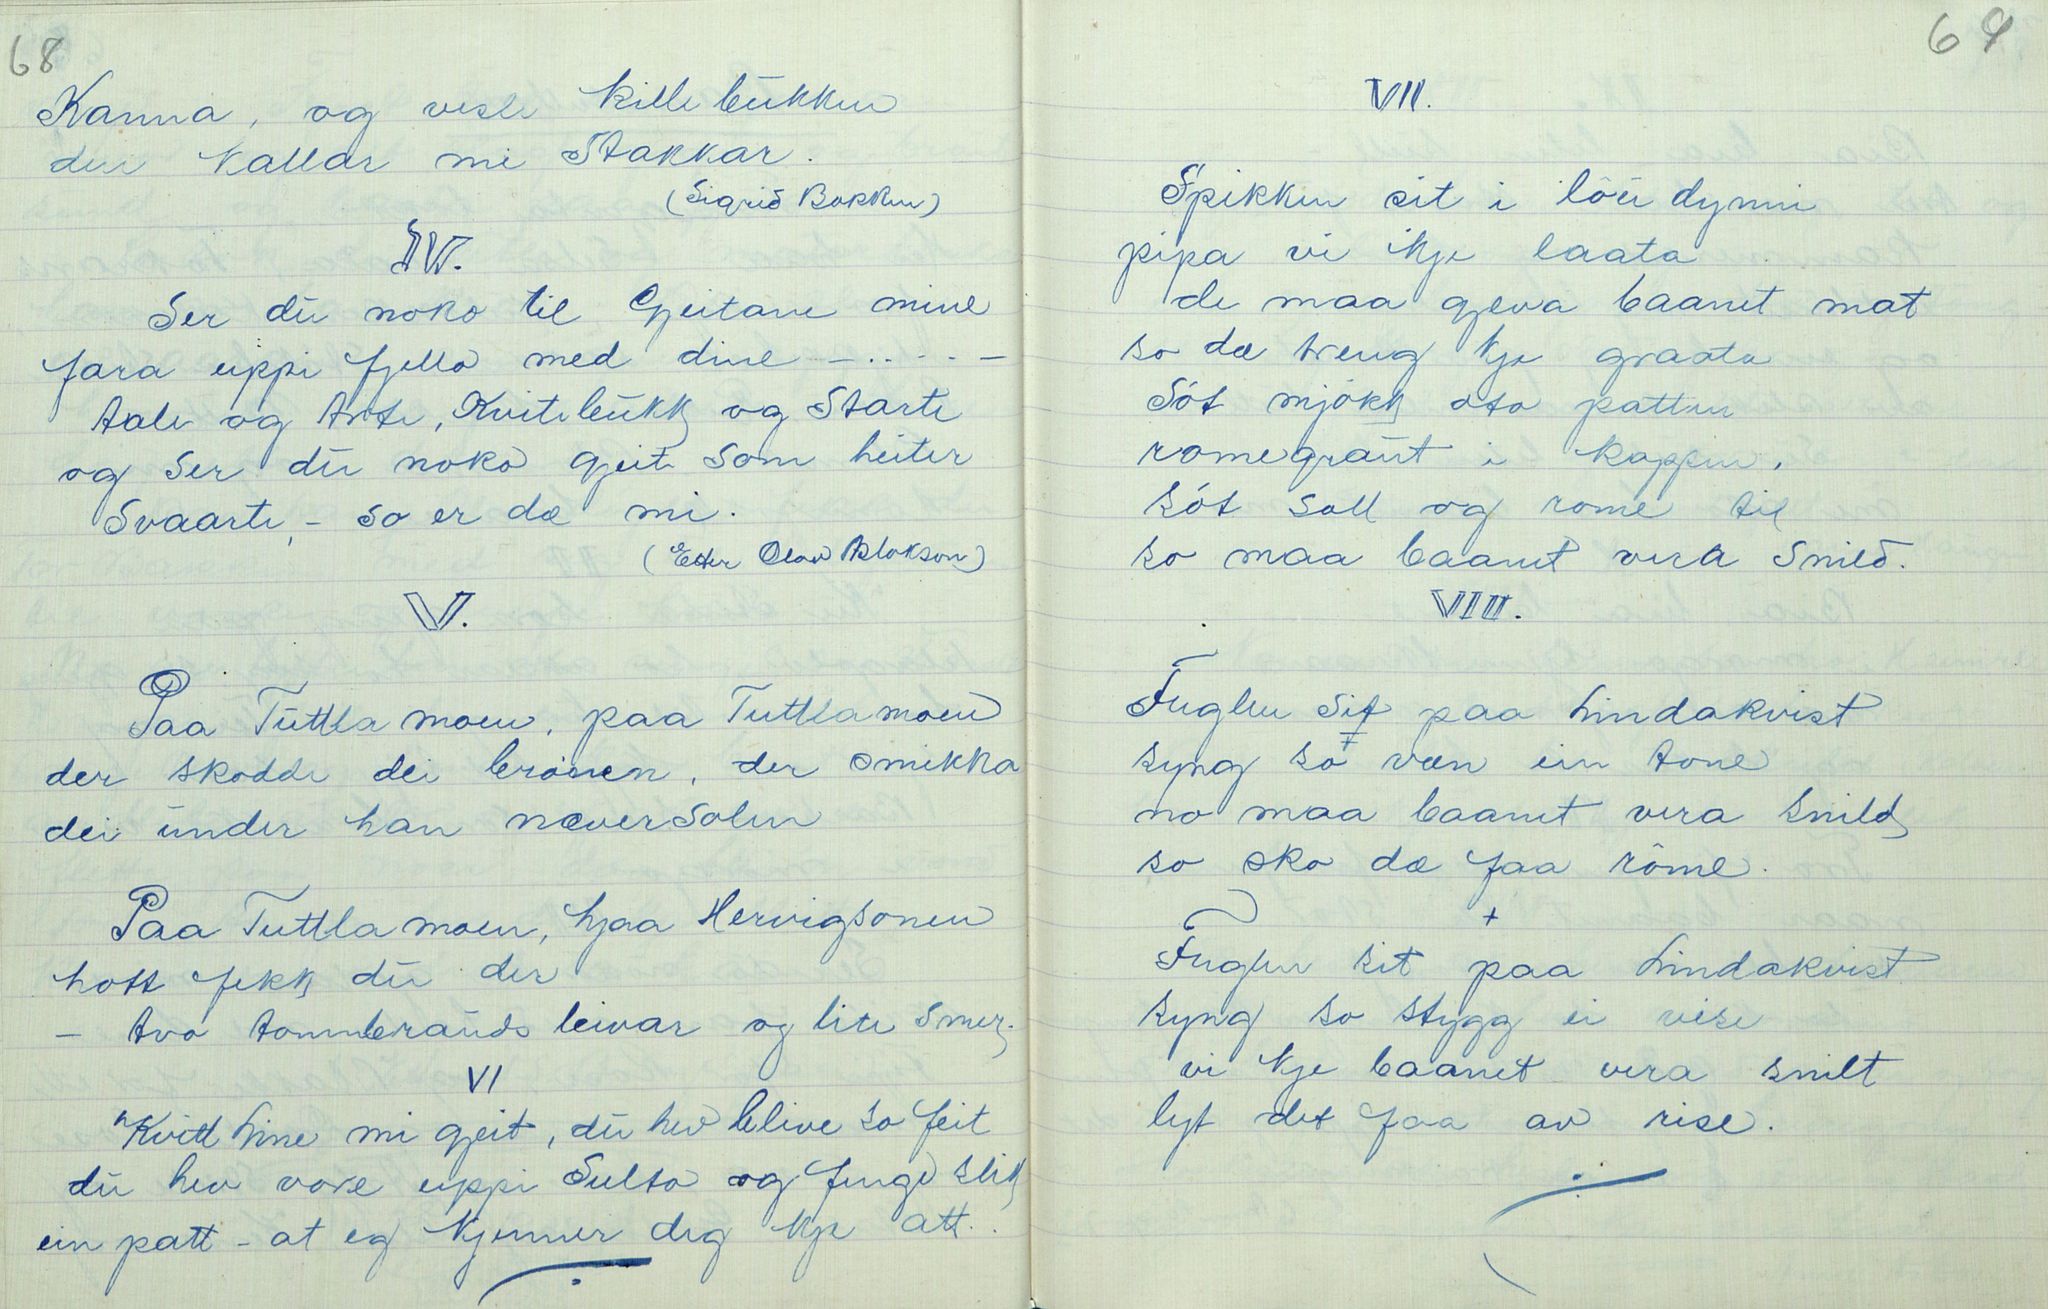 68
Kanna, og vesle killebukken
den kallar mi Stakkar.
(Sigrid Bokken)
IV.
Ser du noko til Gjeitane mine
fara uppi fjello med dine - . . . . -
Aale og Arte, Kvitebukk og Starte
og Ser du noko gjeit som heiter
Svaarte, - so er dæ mi.
(Etter Olav Aslakson)
V.
Paa Tuttlamoen, paa Tuttlamoen
der skodde dei brønen, der smikka
dei under han næversolen
Paa Tuttlamoen, hjaa Hervigsonen
hott fekk du der
- tvo tommbrands leivar og lite smer.
VI
"Kvitt Line mi gjeit, du hev blive so feit
du hev vore uppi Sulto og fenge slik
ein patt - at eg kjenner deg kje att.
69
VII.
Spikken sit i löudynni
pipa vi ikje laata
de maa gjeva baanet mat
so dæ treng kje graata
Söt mjökk oto patten
romegraut i koppen.
söt soll og rome til
so maa baanet vera snild.
VIII.
Fuglen sit paa Lindakvist
syng so væn ein tone
no maa baanet vera snild
so sko dæ faa röme.
+
Fuglen sit paa Lindakvist
syng so stygg ei vise
vi kje baanet vera snilt
lyt det faa av rise.